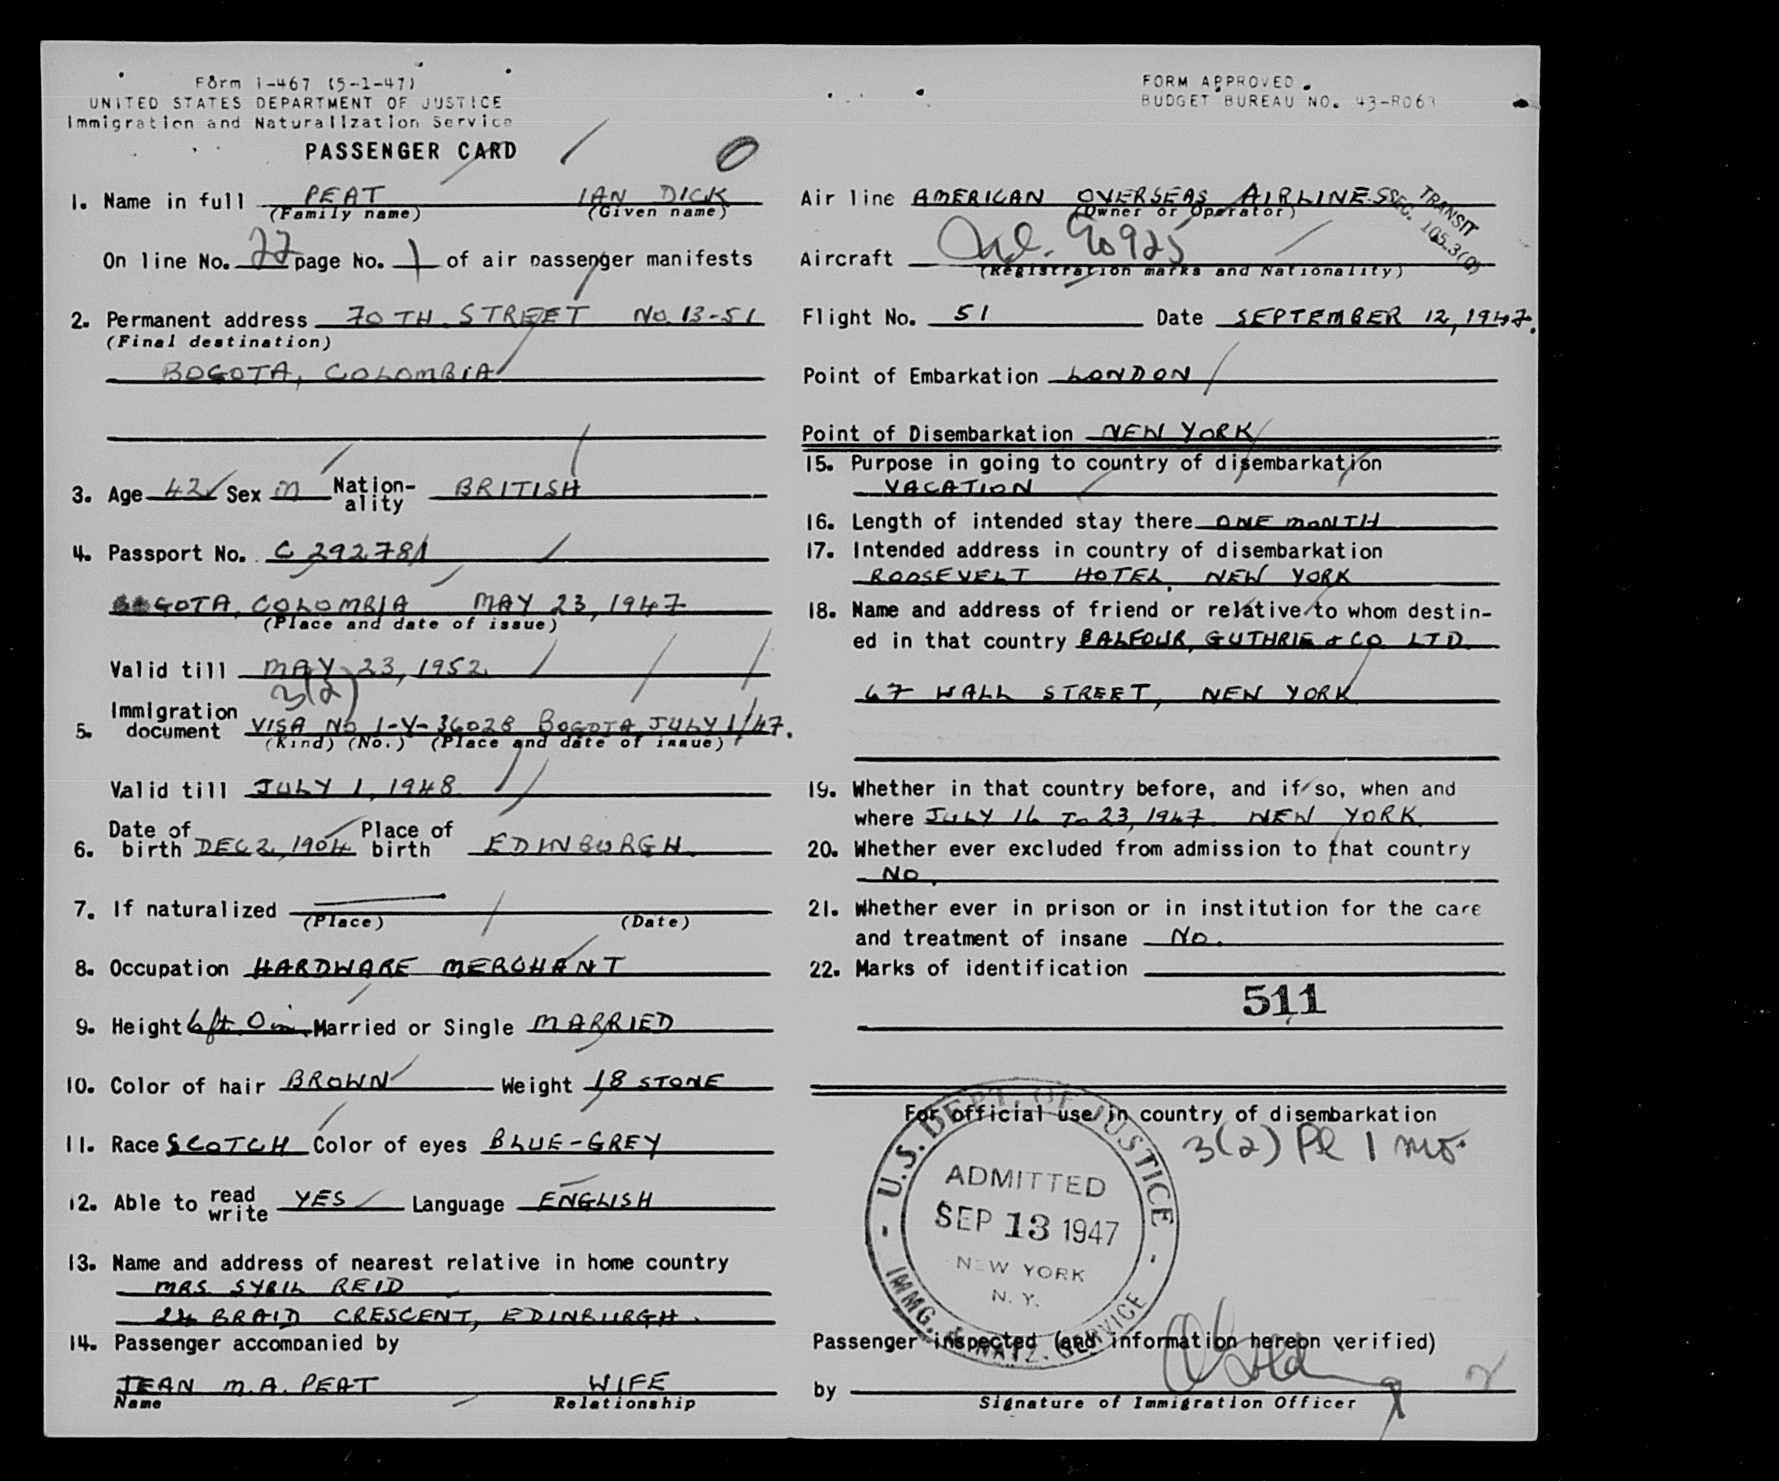 Form I-467 (5-1-47)
UNITED STATES DEPARTMENT OF JUSTICE
Immigration and Naturalization Service
PASSENGER CARD
0
1. Name in full PEAT IAN DICK
(Family name) (Given name)
On line No. 22 page No. 1 of air passenger manifests
2. Permanent address 70TH STREET No. 13-51
(Final destination)
BOGOTA, COLOMBIA
3. Age 42 Sex M Nation-ality BRITISH
4. Passport No. C 292781
BOGOTA, COLOMBIA MAY 23, 1947
(Place and date of issue)
Valid till MAY 23, 1952
3(2)
5. Immigration document VISA No 1-V-36028 BOGOTA, JULY 1/47.
(Kind) (No.) (Place and date of issue)
Valid till JULY 1, 1948
6. Date of birth DEC 2, 1904 Place of birth EDINBURGH.
7. If naturalized
(Place) (Date)
8. Occupation HARDWARE MERCHANT
9. Height 6 ft. 0 in. Married or Single MARRIED
10. Color of hair BROWN Weight 18 STONE
11. Race SCOTCH Color of eyes BLUE-GREY
12. Able to read write YES Language ENGLISH
13. Name and address of nearest relative in home country
MRS. SYBIL REID
24 BRAID CRESCENT, EDINBURGH.
14. Passenger accompanied by
JEAN M.A. PEAT WIFE
Name Relationship
FORM APPROVED.
BUDGET BUREAU NO. 43-R063
Air line AMERICAN OVERSEAS AIRLINES
(Owner or Operator)
TRANSIT
SEC. 105.3(a)
Aircraft 90925
(Registration marks and Nationality)
Flight No. 51 Date SEPTEMBER 12, 1947.
Point of Embarkation LONDON
Point of Disembarkation NEW YORK
15. Purpose in going to country of disembarkation
VACATION
16. Length of intended stay there ONE MONTH
17. Intended address in country of disembarkation
ROOSEVELT HOTEL, NEW YORK
18. Name and address of friend or relative to whom destin-
ed in that country BALFOUR, GUTHRIE & CO. LTD.
67 WALL STREET, NEW YORK
19. Whether in that country before, and if so, when and
where JULY 16 To 23, 1947. NEW YORK.
20. Whether ever excluded from admission to that country
NO.
21. Whether ever in prison or in institution for the care
and treatment of insane No.
22. Marks of identification
511
For official use in country of disembarkation
3(2) Pl 1 mo.
U.S. DEPT. OF JUSTICE
ADMITTED
SEP 13 1947
NEW YORK
N. Y.
IMMG. & NATZ. SERVICE
Passenger inspected (and information hereon verified)
by
Signature of Immigration Officer